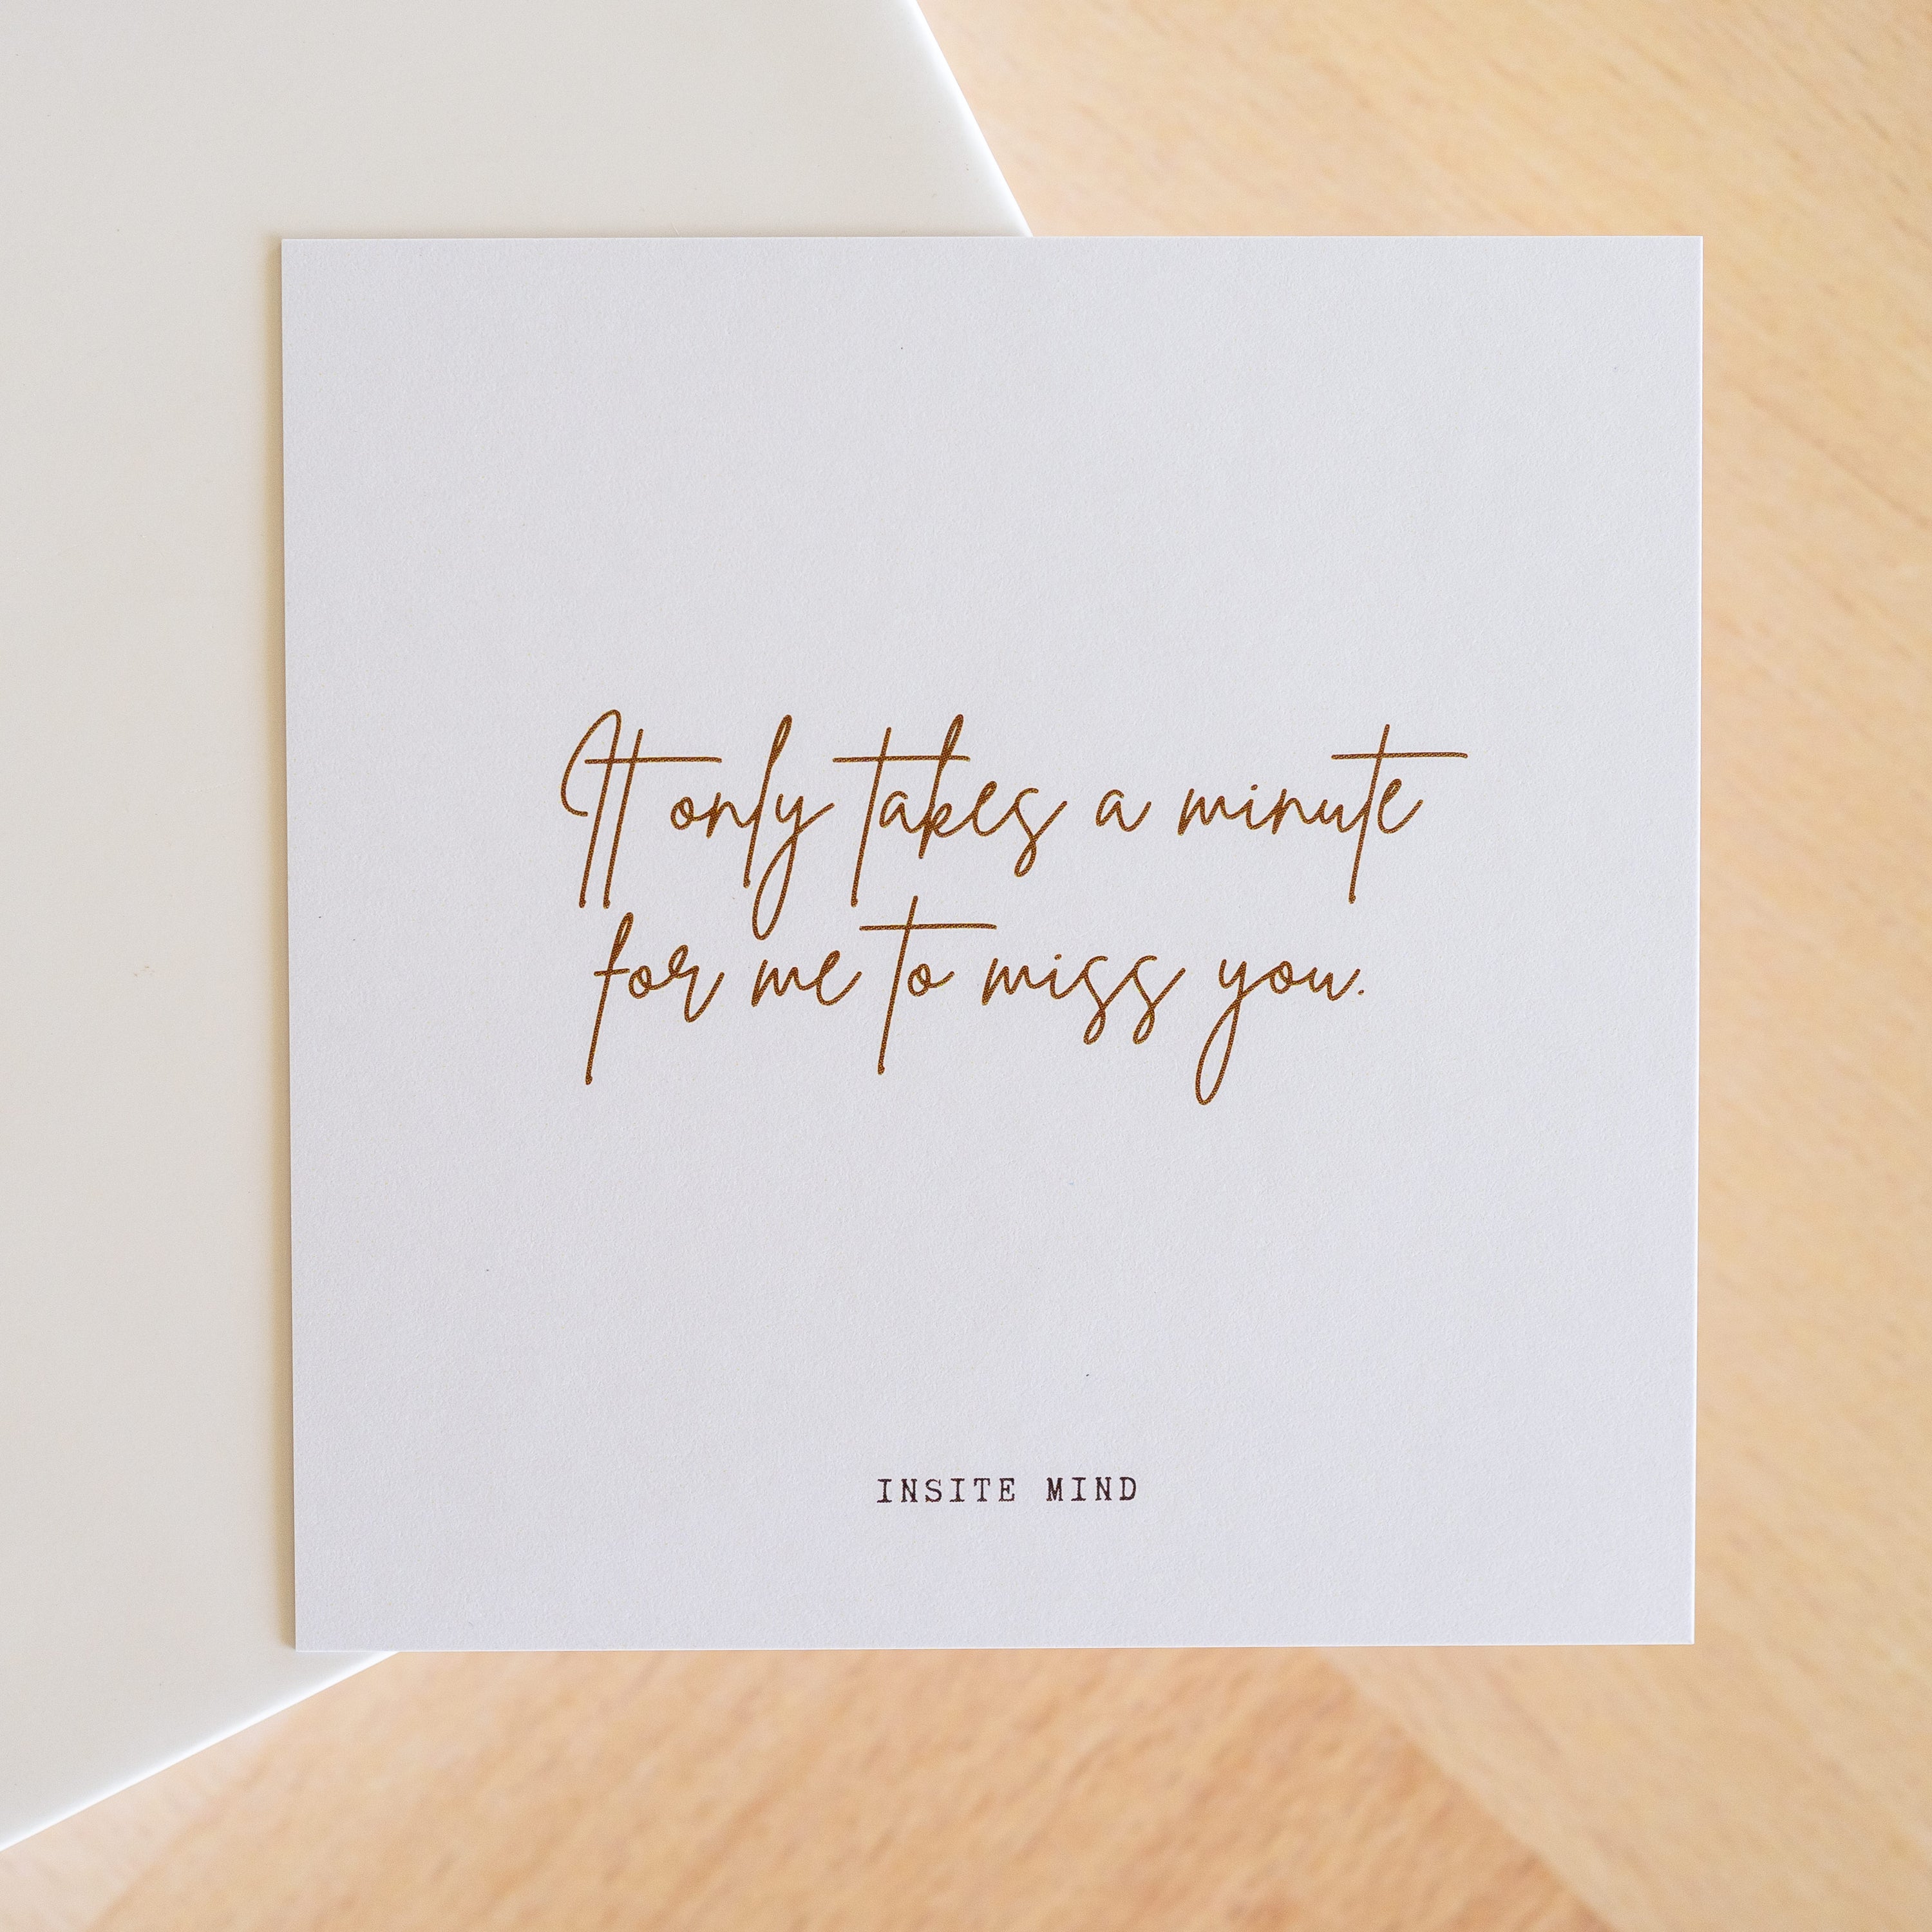 It only takes a minute
for me to miss you.
INSITE MIND